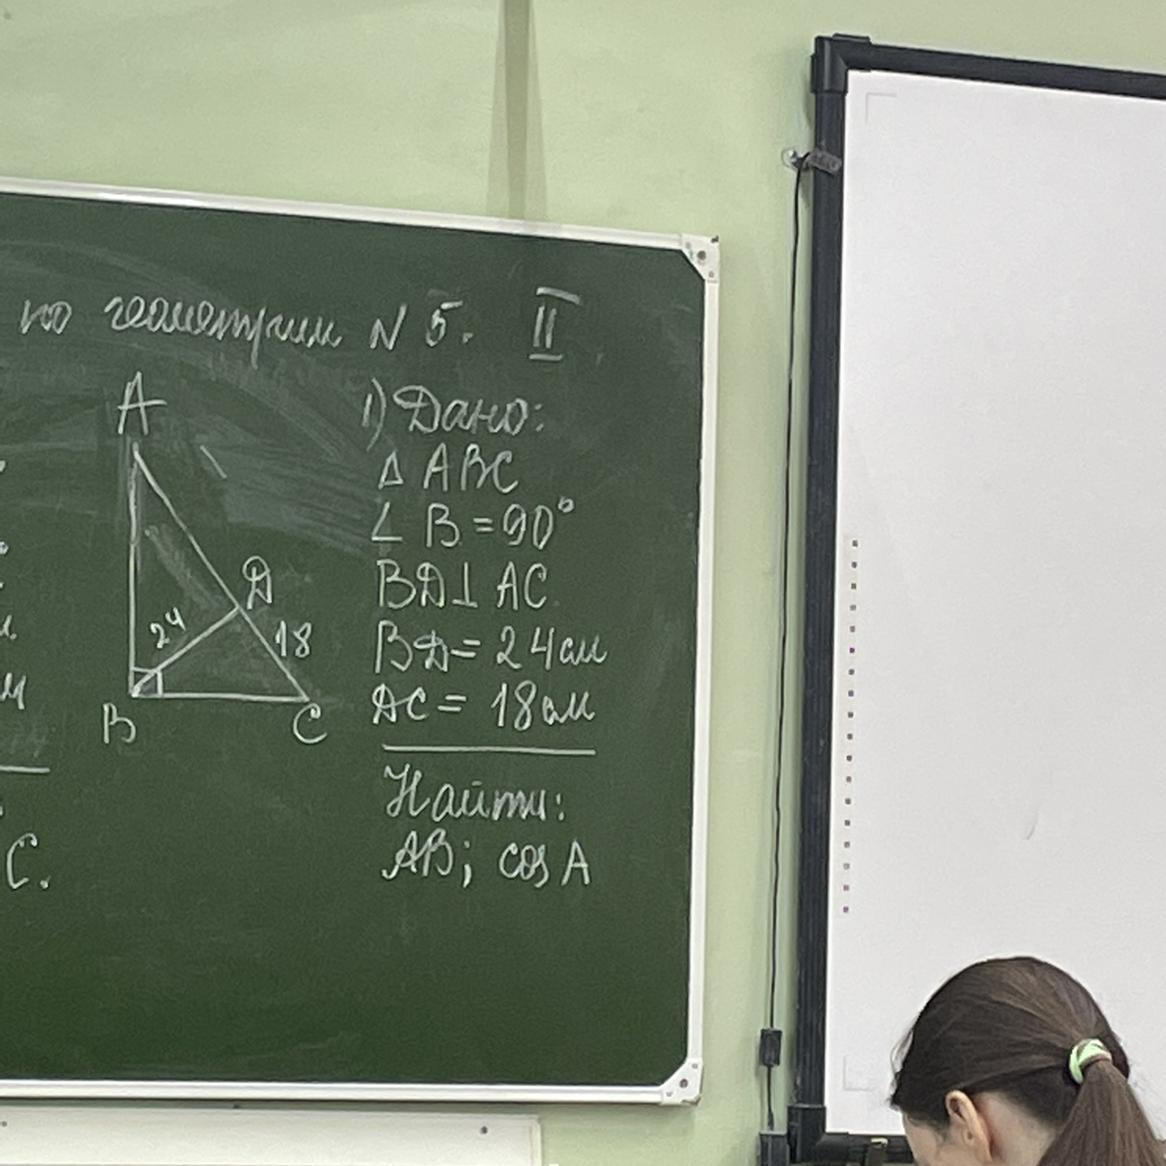 по геометрии N 5. II
A
D
24
18
B
C
1) Дано:
Δ ABC
∠ B = 90°
BD ⊥ AC
BD = 24 см
DC = 18 см
Найти:
AB; cos A
м
C.